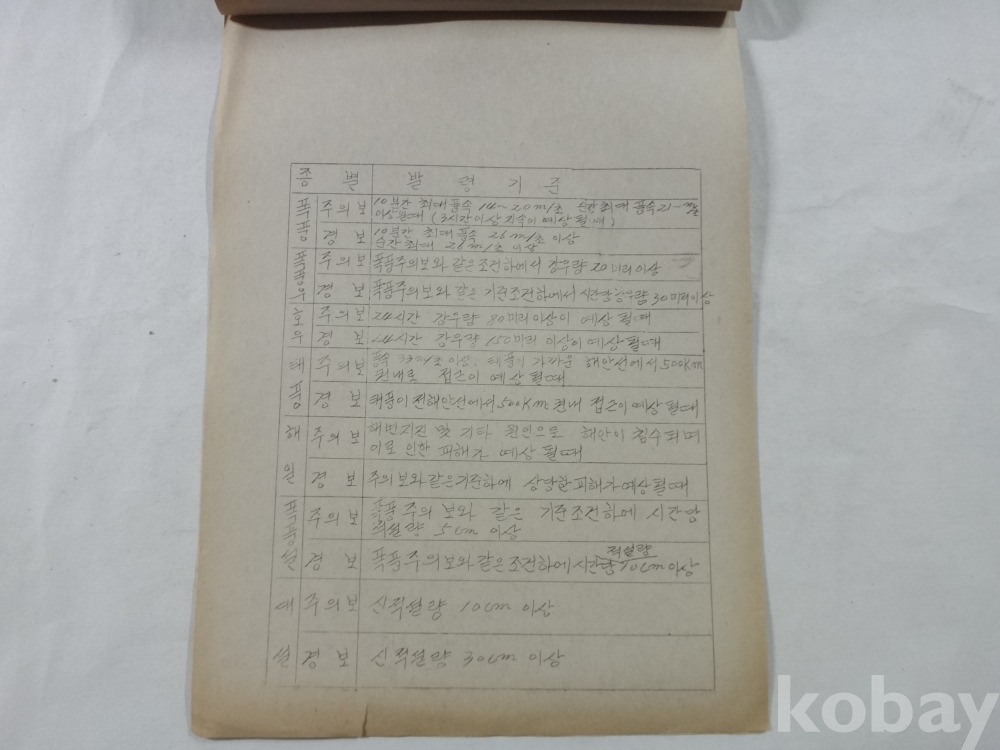 종 별 발 령 기 준
폭풍 주의보 10분간 최대풍속 14~20m/초 순간최대풍속 21~
이상일때 (3시간이상 지속이 예상될때)
경보 10분간 최대풍속 26m/초 이상
순간최대 26m/초 이상
폭풍우 주의보 폭풍주의보와 같은조건하에서 강우량 20미리이상
경보 폭풍주의보와 같은 기준조건하에서 시간당강우량 30미리이상
호우 주의보 24시간 강우량 80미리이상이 예상될때
경보 24시간 강우량 150미리 이상이 예상될때
태풍 주의보 풍속 이상, 태풍이 가까운 해안선에서 500Km
권내로 접근이 예상될때
경보 태풍이 전해안선에서 500Km 권내 접근이 예상될때
해일 주의보 해변지진 및 기타 원인으로 해안이 침수되며
이로 인한 피해가 예상될때
경보 주의보와같은기준하에 상당한피해가예상될때
폭풍설 주의보 폭풍주의보와 같은 기준조건하에 시간당
적설량 5cm 이상
경보 폭풍주의보와같은조건하에시간당 적설량 10cm이상
대설 주의보 신적설량 10cm 이상
경보 신적설량 30cm 이상
kobay